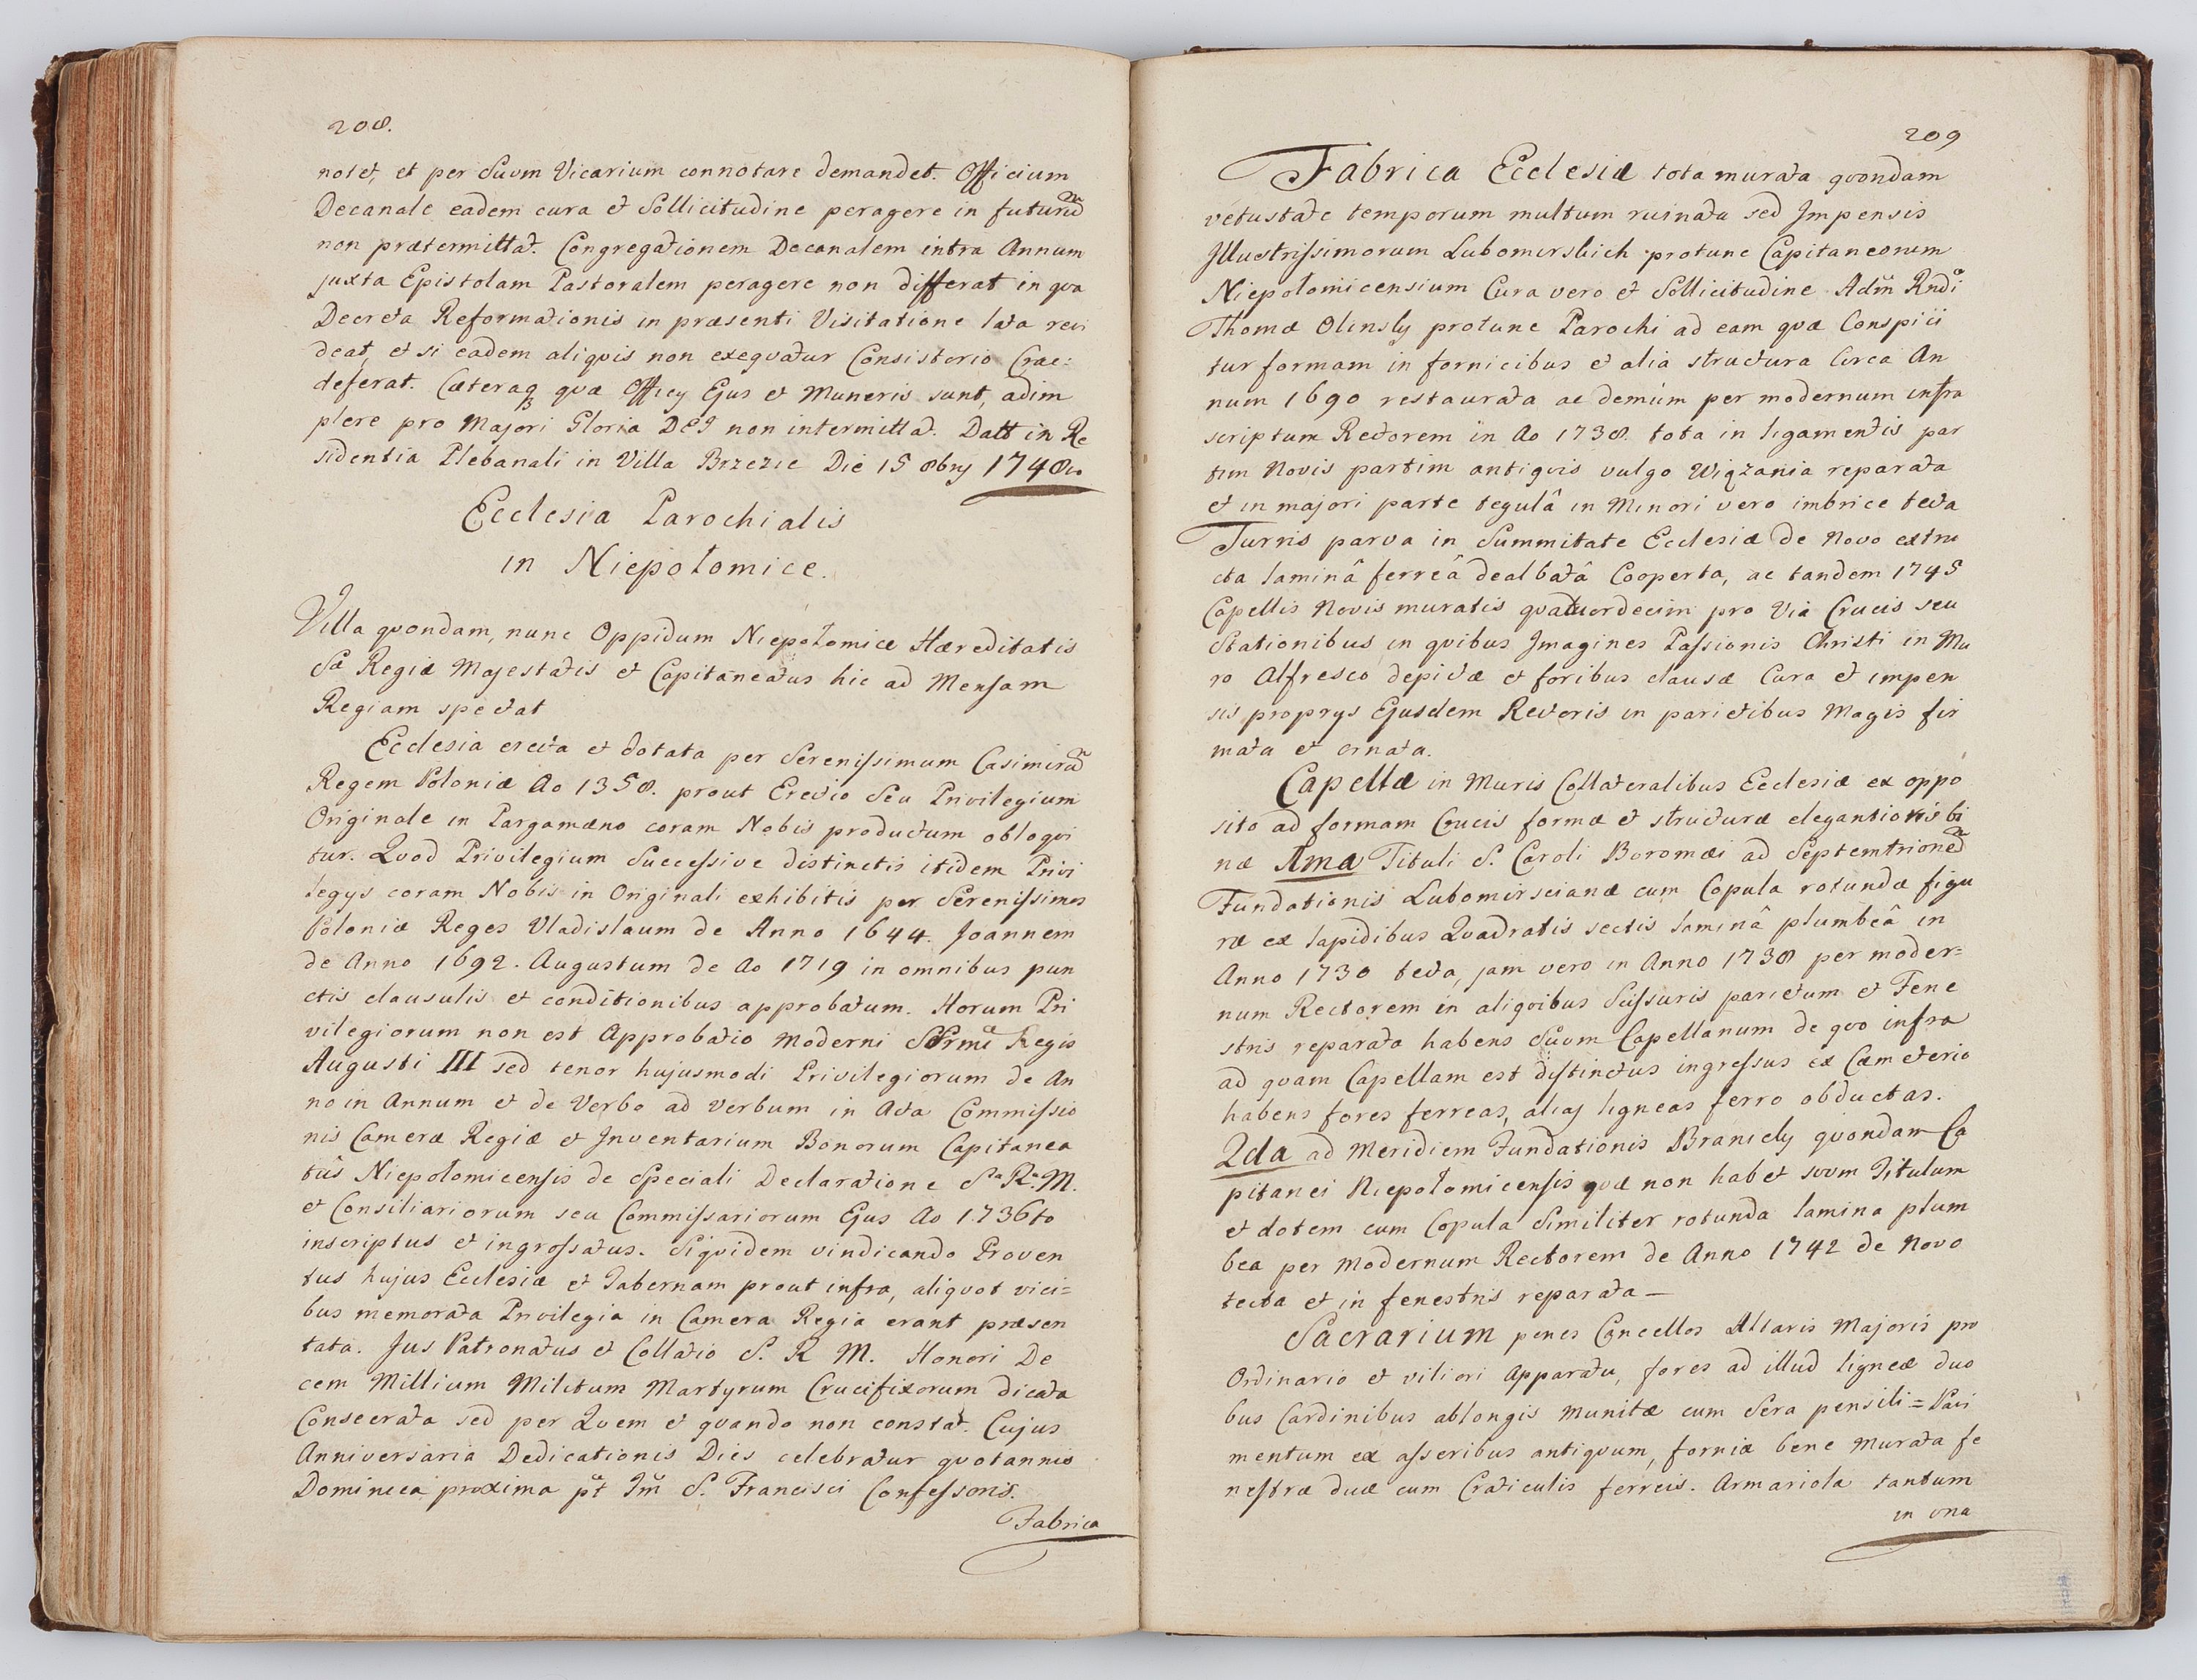 208.
notet, et per Suum Vicarium connotare demandet. Officium
Decanale eadem cura et Sollicitudine peragere in futurū
non prætermittat. Congregationem Decanalem intra Annum
juxta Epistolam Pastoralem peragere non differat in qva
Decreta Reformationis in præsenti Visitatione lata revi
deat, et si eadem aliqvis non exeqvatur Consistorio Crac:
deferat. Cæteraq qvæ Officy Ejus et Muneris sunt, adim
plere pro Majori Gloria DEI non intermittat. Datt in Re
sidentia Plebanali in Villa Brzezie Die 15 8bry 1748vo
Ecclesia Parochialis
in Niepołomice.
Villa qvondam, nunc Oppidum Niepołomice Hæreditatis
Sæ Regiæ Majestatis et Capitaneatus hic ad Mensam
Regiam spectat
Ecclesia erecta et dotata per Serenissimum Casimirū
Regem Poloniæ Ao 1358. prout Erectio Seu Privilegium
Originale in Pargamæno coram Nobis productum obloqvi
tur. Qvod Privilegium Successive distinctis itidem Privi
legys coram Nobis in Originali exhibitis per Serenissimos
Poloniæ Reges Vladislaum de Anno 1644. Joannem
de Anno 1692. Augustum de Ao 1719 in omnibus pun
ctis clausulis et conditionibus approbatum. Horum Pri
vilegiorum non est Approbatio Moderni Sermi Regis
Augusti III sed tenor hujusmodi Privilegiorum de An
no in Annum et de Verbo ad Verbum in Acta Commissio
nis Cameræ Regiæ et Inventarium Bonorum Capitanea
tûs Niepołomicensis de Speciali Declaratione S.a R.æ M.
et Consiliariorum seu Commissariorum Ejus Ao 1736to
inscriptus et ingrossatus. Siqvidem vindicando Proven
tus hujus Ecclesiæ et Tabernam prout infra, aliqvot vici=
bus memorata Privilegia in Camera Regia erant præsen
tata. Jus Patronatus et Collatio S. R M. Honori De
cem Millium Militum Martyrum Crucifixorum dicata
Consecrata sed per Qvem et qvando non constat. Cujus
Anniversaria Dedicationis Dies celebratur qvotannis
Dominica proxima pt Im S. Francisci Confessoris.
Fabrica
209
Fabrica Ecclesiæ tota murata qvondam
vetustate temporum multum ruinata sed Impensis
Illustrissimorum Lubomirskich protunc Capitaneorum
Niepołomicensium Cura vero et Sollicitudine Adm Rndi
Thomæ Olinsky protunc Parochi ad eam qvæ Conspici
tur formam in fornicibus et alia structura Circa An
num 1690 restaurata ac demum per modernum infra
scriptum Rectorem in Ao 1738. tota in ligamentis par
tim Novis partim antiqvis vulgo Wiązania reparata
et in majori parte tegulâ in Minori vero imbrice tecta
Turris parva in Summitate Ecclesiæ de Novo extru
cta laminâ ferreâ dealbatâ Cooperta, ac tandem 1745
Capellis Novis muratis qvatuordecim pro Via Crucis seu
Stationibus in qvibus Imagines Passionis Christi in Mu
ro Alfresco depictæ et foribus clausæ Cura et impen
sis proprys Ejusdem Rectoris in parietibus Magis fir
mata et ornata.
Capellæ in Muris Collateralibus Ecclesiæ ex oppo
sito ad formam Crucis formæ et structuræ elegantioris bi
næ Ama Tituli S. Caroli Boromæi ad Septemtrionē
Fundationis Lubomirscianæ cum Copula rotundæ figu
ræ ex lapidibus Qvadratis sectis laminâ plumbeâ in
Anno 1730 tecta, jam vero in Anno 1738 per moder=
num Rectorem in aliqvibus Scissuris parietum et Fene
stris reparata habens Suum Capellanum de qvo infra
ad qvam Capellam est distinctus ingressus ex Cæmeterio
habens fores ferreas, alias ligneas ferro obductas.
2da ad Meridiem Fundationis Branicky qvondam Ca
pitanei Niepołomicensis qvæ non habet suum Titulum
et dotem cum Copula Similiter rotunda lamina plum
bea per Modernum Rectorem de Anno 1742 de Novo
tecta et in fenestris reparata —
Sacrarium penes Cancellos Altaris Majoris pro
Ordinario et viliori Apparatu, fores ad illud ligneæ duo
bus Cardinibus ablongis munitæ cum Sera pensili = Pavi
mentum ex asseribus antiqvum, fornix bene Murata fe
nestræ duæ cum Craticulis ferreis. Armariola tantum
in una